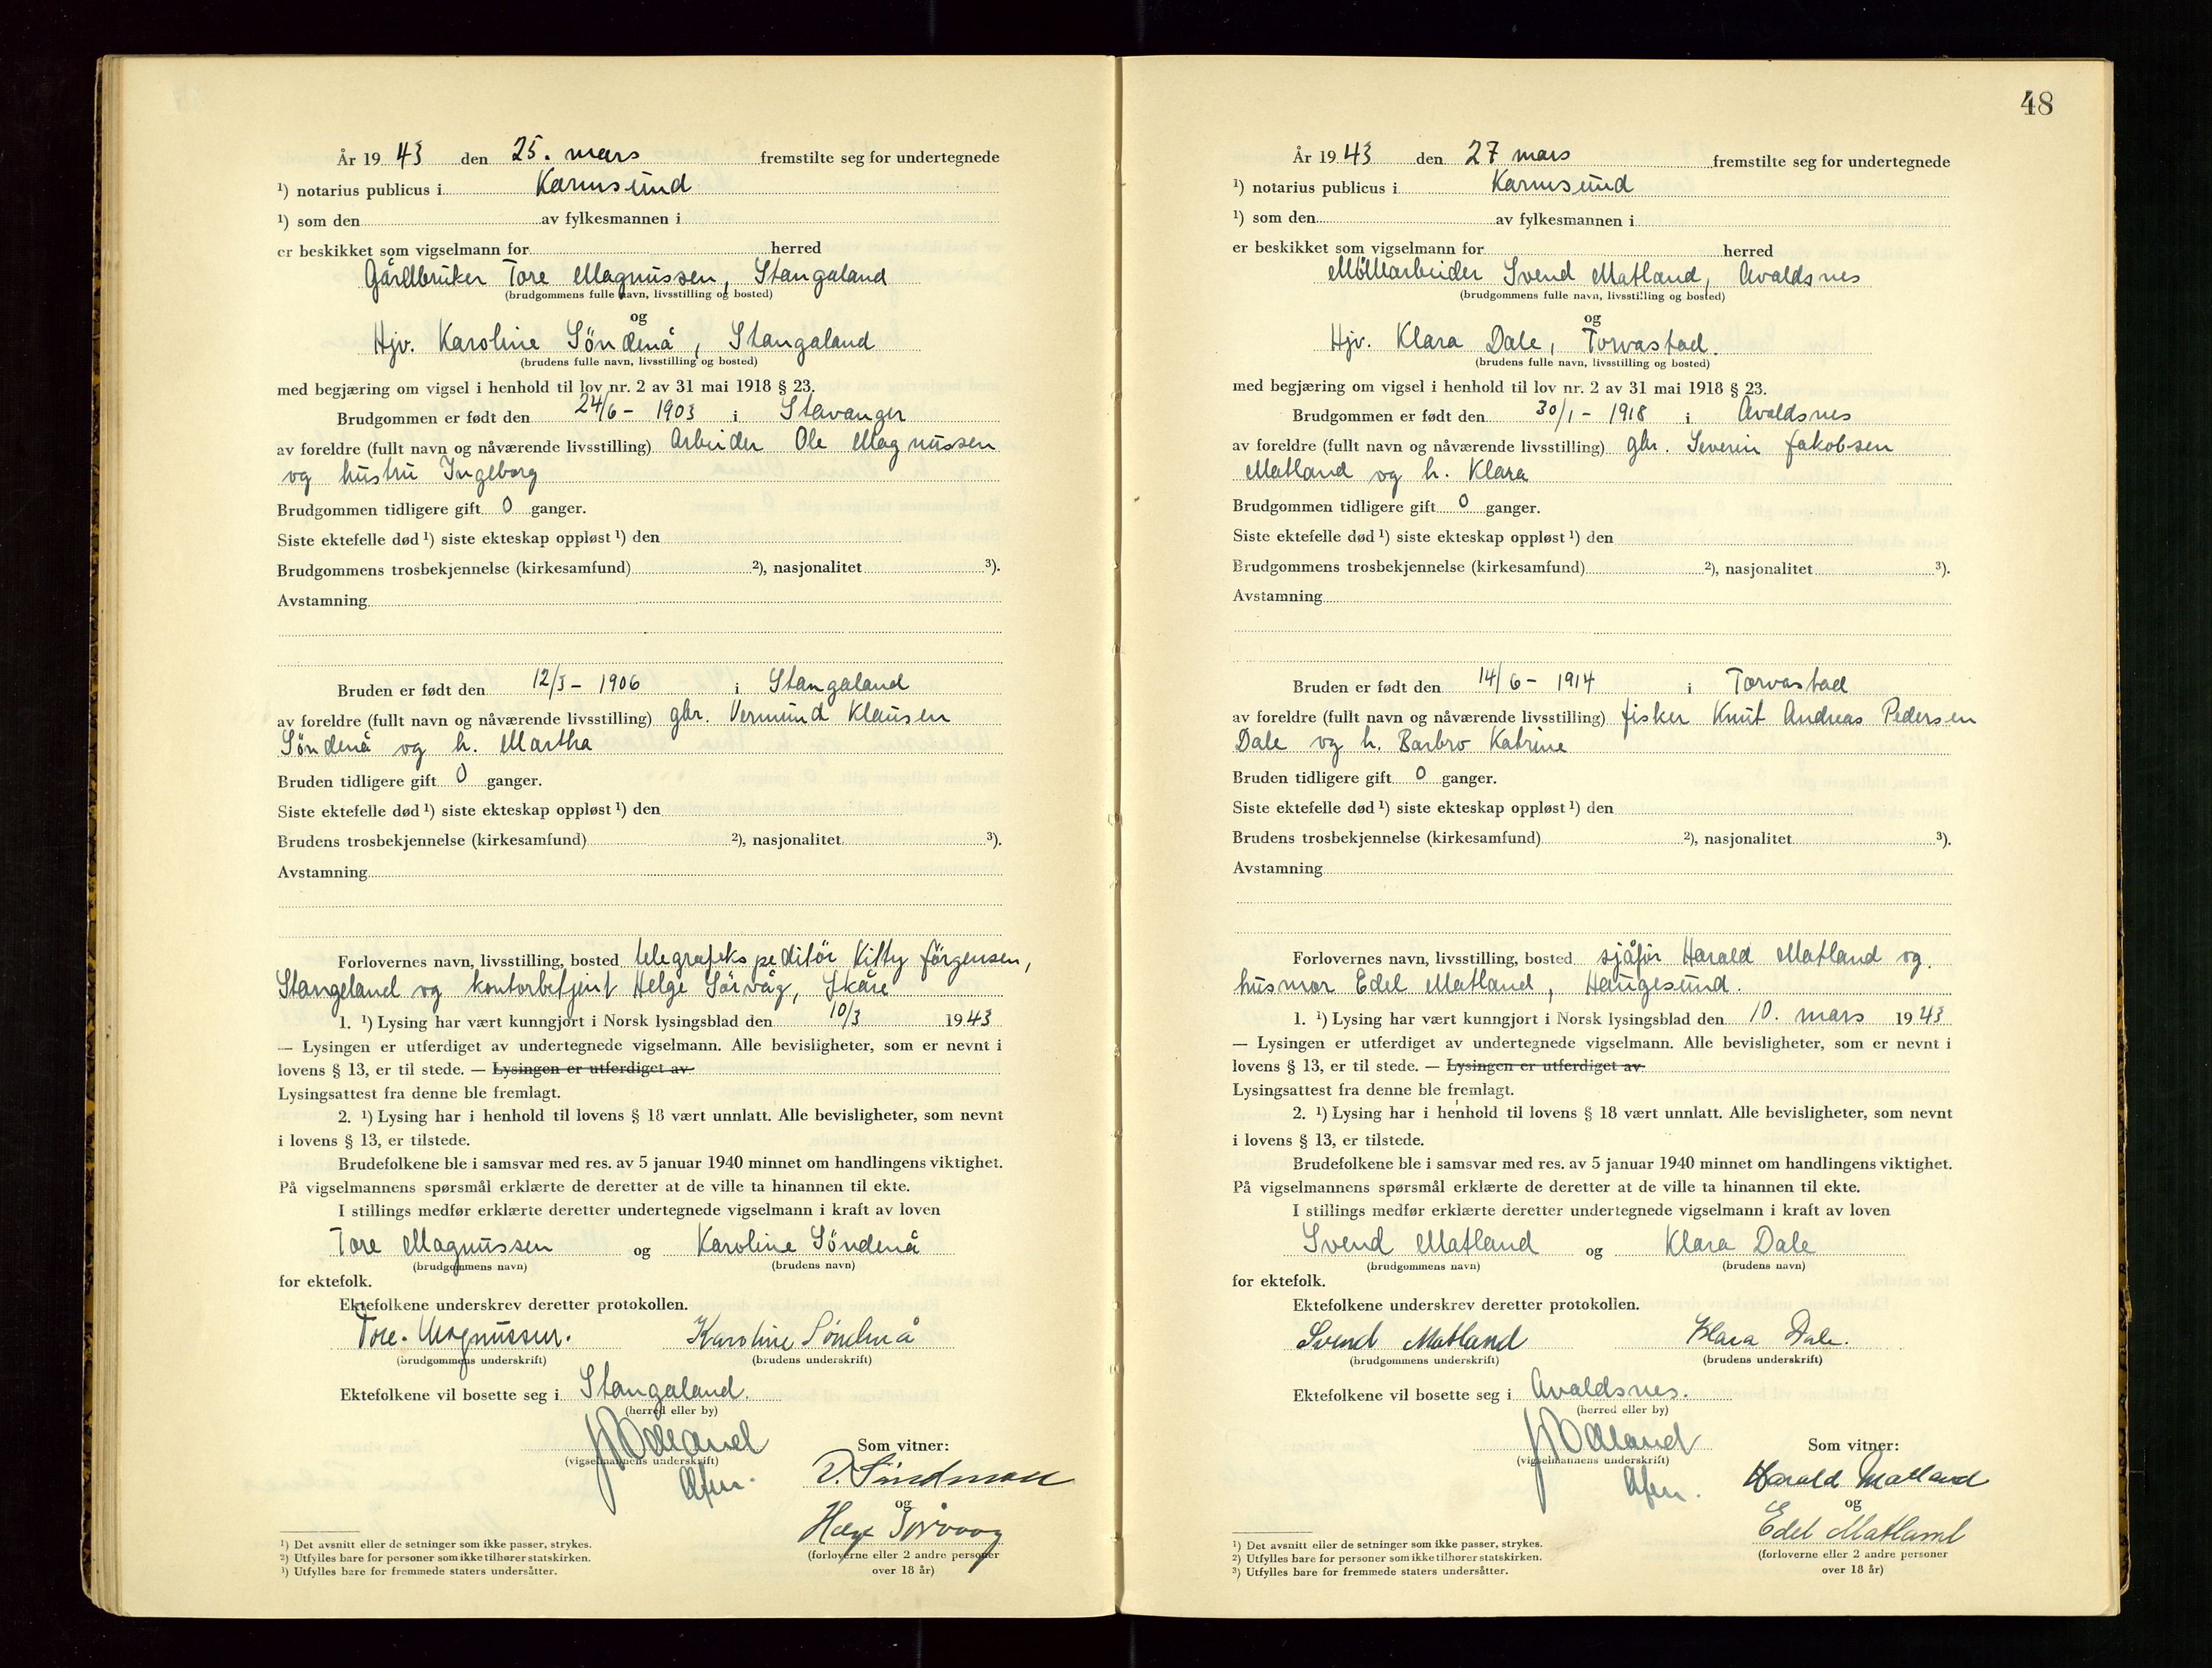 År 19 43 den 25. mars fremstilte seg for undertegnede
¹) notarius publicus i Karmsund
¹) som den av fylkesmannen i
er beskikket som vigselmann for herred
Gårdbruker Tore Magnussen, Stangaland
(brudgommens fulle navn, livsstilling og bosted)
og
Hjv. Karoline Söndenå, Stangaland
(brudens fulle navn, livsstilling og bosted)
med begjæring om vigsel i henhold til lov nr. 2 av 31 mai 1918 § 23.
Brudgommen er født den 24/6 - 1903 i Stavanger
av foreldre (fullt navn og nåværende livsstilling) Arbeider Ole Magnussen
og hustru Ingeborg
Brudgommen tidligere gift 0 ganger.
Siste ektefelle død ¹) siste ekteskap oppløst ¹) den
Brudgommens trosbekjennelse (kirkesamfund) ²), nasjonalitet ³).
Avstamning
Bruden er født den 12/3 - 1906 i Stangaland
av foreldre (fullt navn og nåværende livsstilling) gbr. Vermund Klausen
Söndenå og h. Martha
Bruden tidligere gift 0 ganger.
Siste ektefelle død ¹) siste ekteskap oppløst ¹) den
Brudens trosbekjennelse (kirkesamfund) ²), nasjonalitet ³).
Avstamning
Forlovernes navn, livsstilling, bosted telegrafekspeditör Kitty Jörgensen,
Stangeland og kontorbetjent Helge Sörvåg, Skåre
1. ¹) Lysing har vært kunngjort i Norsk lysingsblad den 10/3 19 43
— Lysingen er utferdiget av undertegnede vigselmann. Alle bevisligheter, som er nevnt i
lovens § 13, er til stede. — Lysingen er utferdiget av
Lysingsattest fra denne ble fremlagt.
2. ¹) Lysing har i henhold til lovens § 18 vært unnlatt. Alle bevisligheter, som nevnt
i lovens § 13, er tilstede.
Brudefolkene ble i samsvar med res. av 5 januar 1940 minnet om handlingens viktighet.
På vigselmannens spørsmål erklærte de deretter at de ville ta hinannen til ekte.
I stillings medfør erklærte deretter undertegnede vigselmann i kraft av loven
Tore Magnussen og Karoline Söndenå
(brudgommens navn) (brudens navn)
for ektefolk.
Ektefolkene underskrev deretter protokollen.
Tore Magnussen. Karoline Söndenå
(brudgommens underskrift) (brudens underskrift)
Ektefolkene vil bosette seg i Stangaland.
(herred eller by)
Ødland
(vigselmannens underskrift)
Som vitner:
og
Helge Sørvaag
(forloverne eller 2 andre personer
over 18 år)
¹) Det avsnitt eller de setninger som ikke passer, strykes.
²) Utfylles bare for personer som ikke tilhører statskirken.
³) Utfylles bare for fremmede staters undersåtter.
48
År 19 43 den 27 mars fremstilte seg for undertegnede
¹) notarius publicus i Karmsund
¹) som den av fylkesmannen i
er beskikket som vigselmann for herred
Möllarbeider Svend Matland, Avaldsnes
(brudgommens fulle navn, livsstilling og bosted)
og
Hjv. Klara Dale, Torvastad.
(brudens fulle navn, livsstilling og bosted)
med begjæring om vigsel i henhold til lov nr. 2 av 31 mai 1918 § 23.
Brudgommen er født den 30/1 - 1918 i Avaldsnes
av foreldre (fullt navn og nåværende livsstilling) gbr. Severin Jakobsen
Matland og h. Klara
Brudgommen tidligere gift 0 ganger.
Siste ektefelle død ¹) siste ekteskap oppløst ¹) den
Brudgommens trosbekjennelse (kirkesamfund) ²), nasjonalitet ³).
Avstamning
Bruden er født den 14/6 - 1914 i Torvastad
av foreldre (fullt navn og nåværende livsstilling) fisker Knut Andreas Pedersen
Dale og h. Barbro Katrine
Bruden tidligere gift 0 ganger.
Siste ektefelle død ¹) siste ekteskap oppløst ¹) den
Brudens trosbekjennelse (kirkesamfund) ²), nasjonalitet ³).
Avstamning
Forlovernes navn, livsstilling, bosted sjåför Harald Matland og
husmor Edel Matland, Haugesund.
1. ¹) Lysing har vært kunngjort i Norsk lysingsblad den 10. mars 19 43
— Lysingen er utferdiget av undertegnede vigselmann. Alle bevisligheter, som er nevnt i
lovens § 13, er til stede. — Lysingen er utferdiget av
Lysingsattest fra denne ble fremlagt.
2. ¹) Lysing har i henhold til lovens § 18 vært unnlatt. Alle bevisligheter, som nevnt
i lovens § 13, er tilstede.
Brudefolkene ble i samsvar med res. av 5 januar 1940 minnet om handlingens viktighet.
På vigselmannens spørsmål erklærte de deretter at de ville ta hinannen til ekte.
I stillings medfør erklærte deretter undertegnede vigselmann i kraft av loven
Svend Matland og Klara Dale
(brudgommens navn) (brudens navn)
for ektefolk.
Ektefolkene underskrev deretter protokollen.
Svend Matland Klara Dale.
(brudgommens underskrift) (brudens underskrift)
Ektefolkene vil bosette seg i Avaldsnes.
(herred eller by)
Ødland
(vigselmannens underskrift)
Som vitner:
Harald Matland
og
Edel Matland
(forloverne eller 2 andre personer
over 18 år)
¹) Det avsnitt eller de setninger som ikke passer, strykes.
²) Utfylles bare for personer som ikke tilhører statskirken.
³) Utfylles bare for fremmede staters undersåtter.